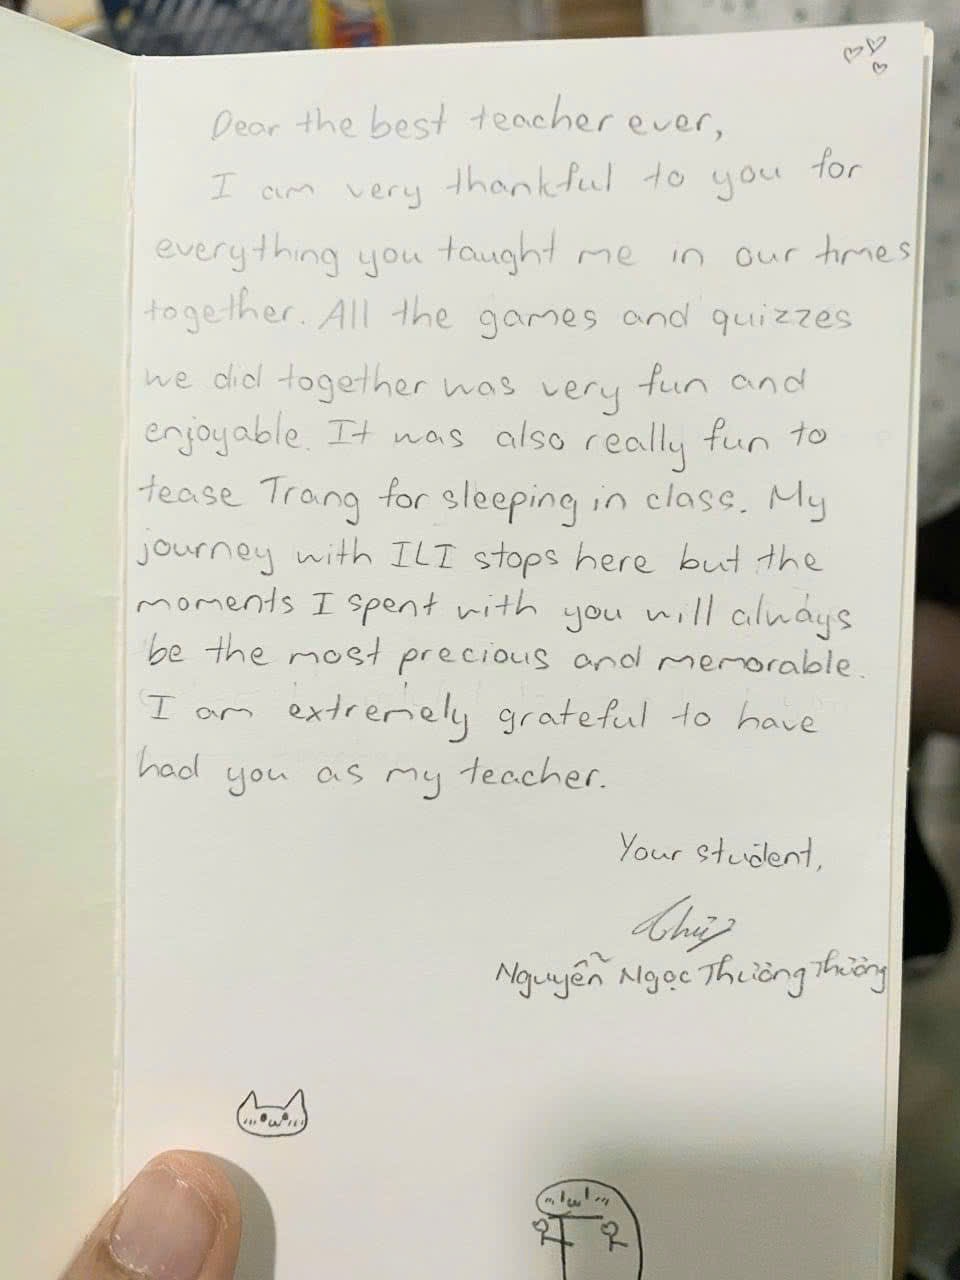 Dear the best teacher ever,
I am very thankful to you for
everything you taught me in our times
together. All the games and quizzes
we did together was very fun and
enjoyable. It was also really fun to
tease Trang for sleeping in class. My
journey with ILI stops here but the
moments I spent with you will always
be the most precious and memorable.
I am extremely grateful to have
had you as my teacher.
Your student,
Nguyễn Ngọc Thường Thường